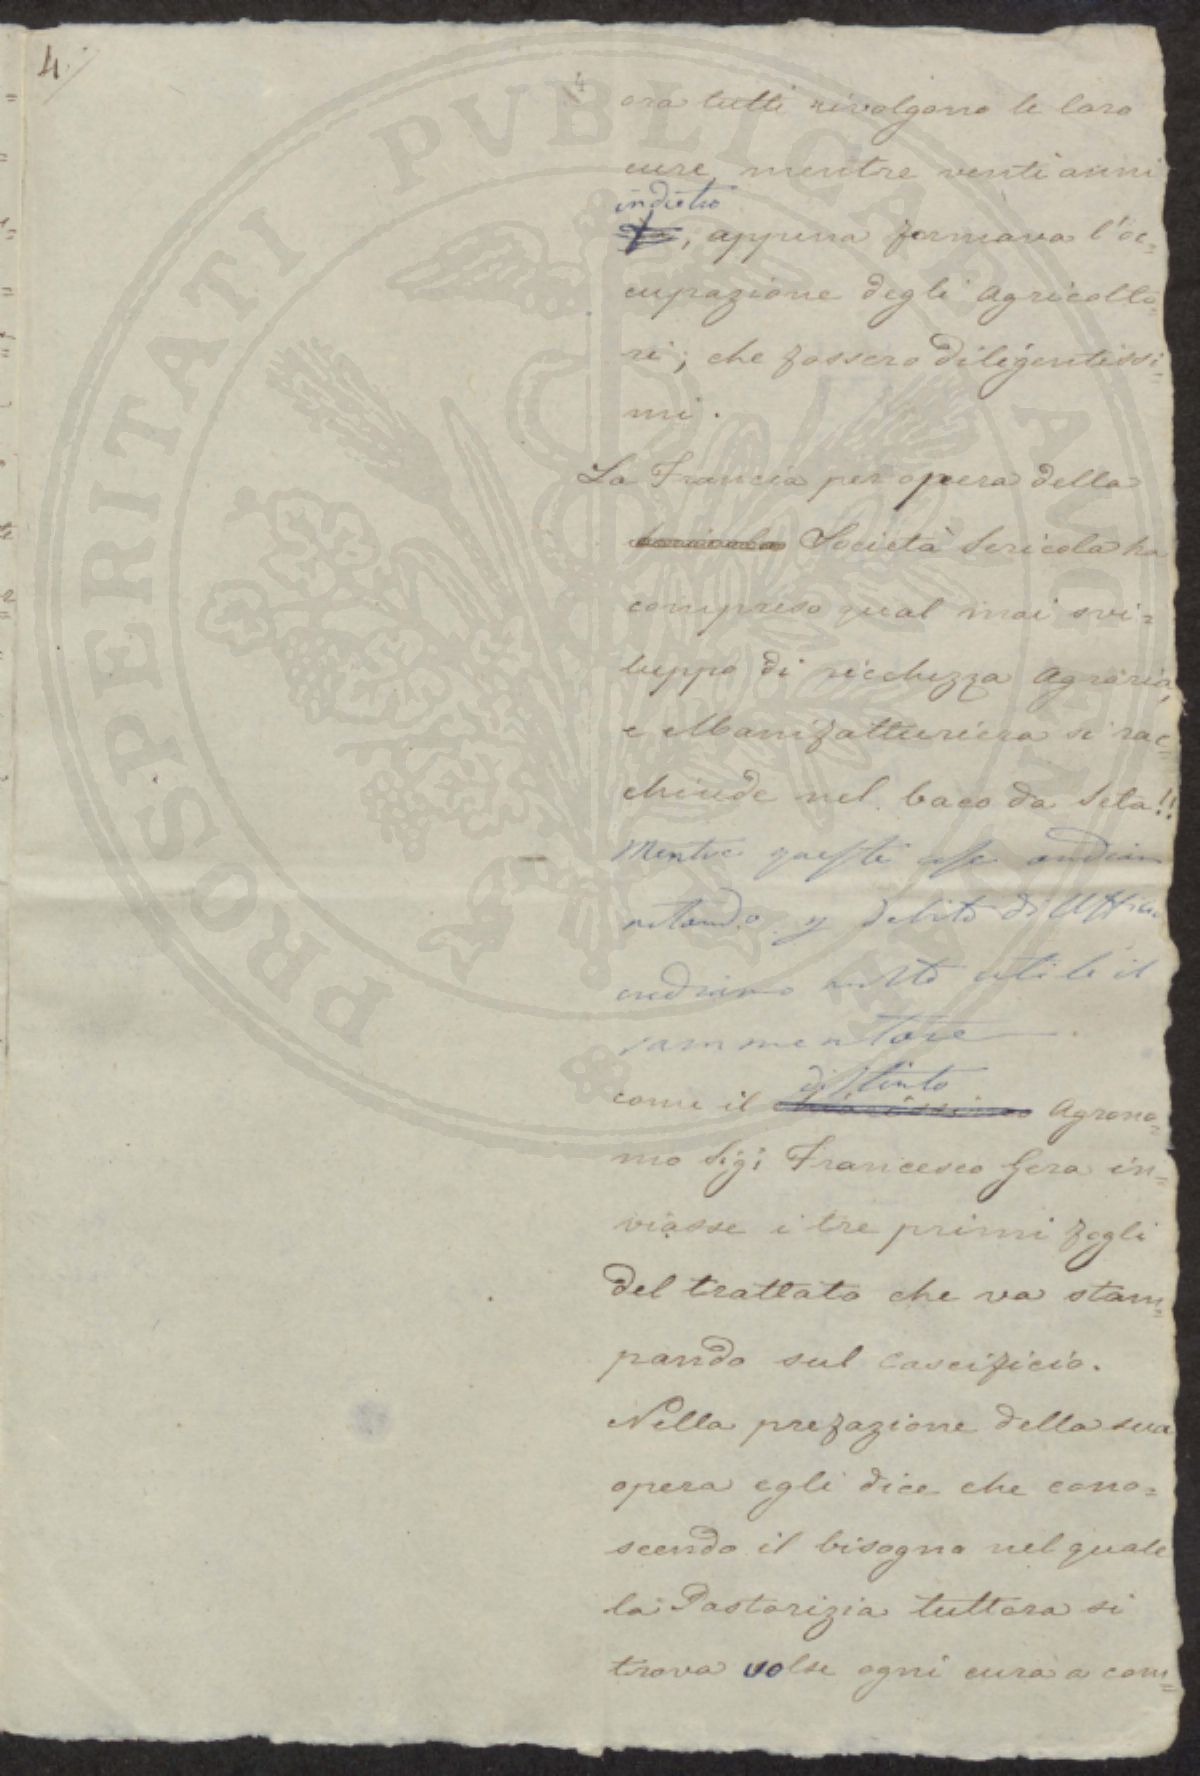 4.
4
ora tutti rivolgono le loro
cure, mentre venti anni
indietro
, appena formava l'oc=
cupazione degli Agricolto=
ri; che fossero diligentissi=
mi.
La Francia per opera della
Società Sericola ha
compreso qual mai svi=
luppo di ricchezza Agraria,
e Manifatturiera si rac=
chiude nel baco da Seta!!
Mentre queste cose andiam
notando p debito di Uffizio
crediamo molto utile il
rammentare
distinto
come il Agrono=
mo Sig; Francesco Gera in=
viasse i tre primi fogli
del trattato che va stam=
pando sul Cascificio.
Nella prefazione della sua
opera egli dice che cono=
scendo il bisogno nel quale
la Pastorizia tuttora si
trova volse ogni cura a com=
PROSPERITATI PVBLICAE AVGENDAE